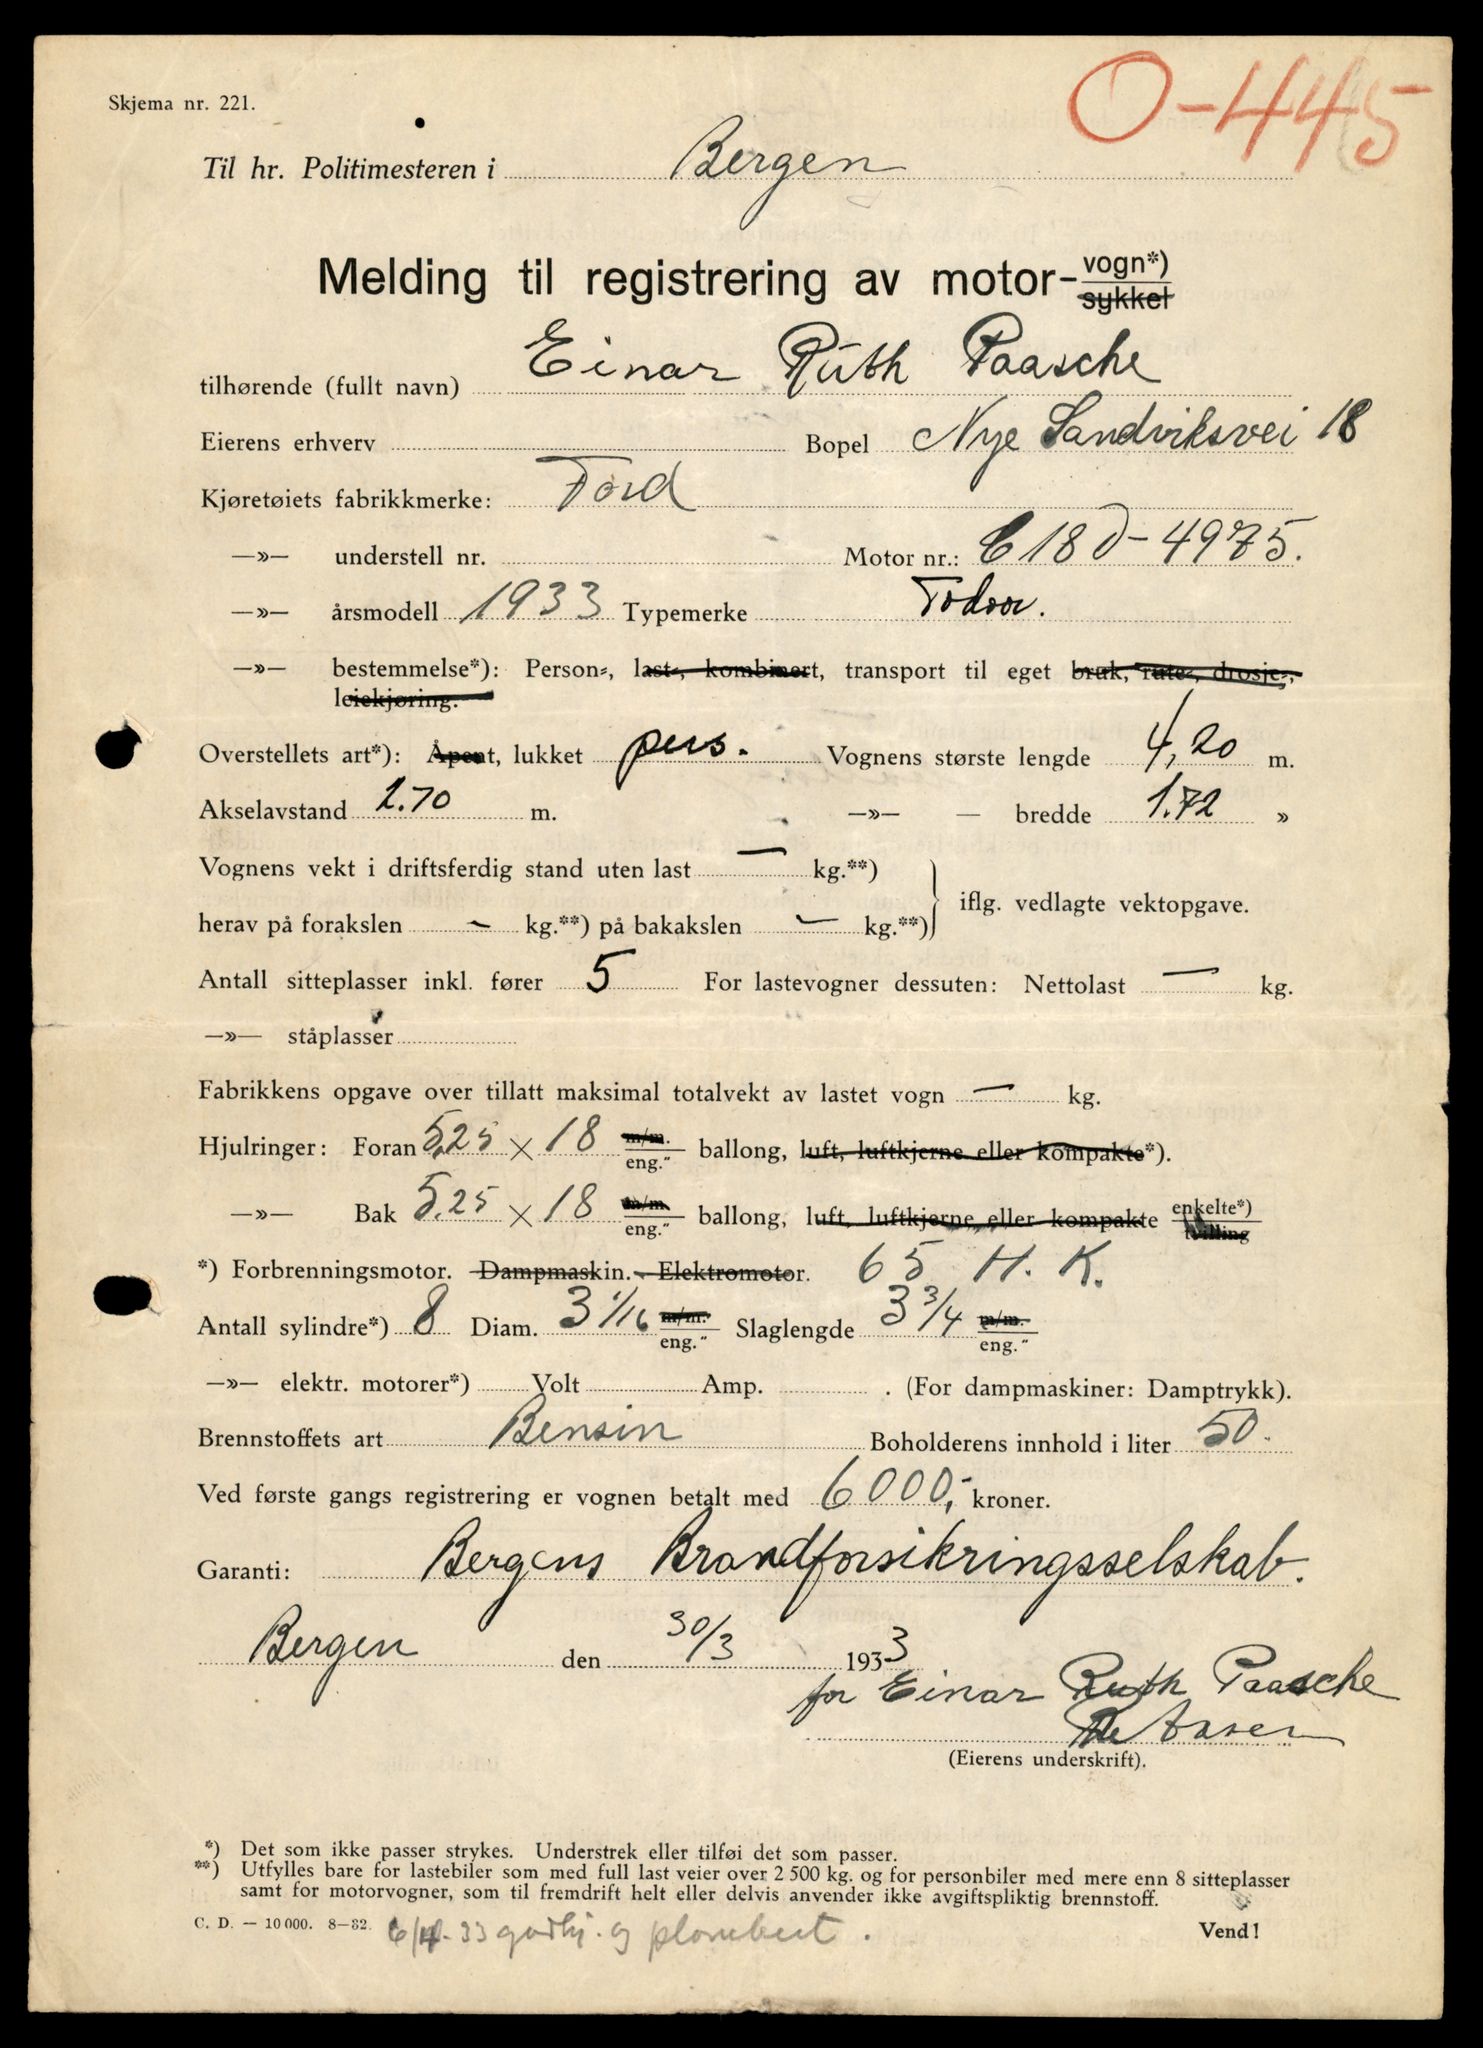 O-445
Skjema nr. 221.
Til hr. Politimesteren i Bergen
Melding til registrering av motor- vogn*) sykkel
tilhørende (fullt navn) Einar Ruth Paasche
Eierens erhverv Bopel Nye Sandviksvei 18
Kjøretøiets fabrikkmerke: Ford
—»— understell nr. Motor nr.: C 18 D-4975.
—»— årsmodell 1933 Typemerke Todor.
—»— bestemmelse*): Person-, last-, kombinert, transport til eget bruk, rute-, drosje-,
leiekjøring.
Overstellets art*): Åpent, lukket pers. Vognens største lengde 4,20 m.
Akselavstand 2.70 m. —»— — bredde 1.72 »
Vognens vekt i driftsferdig stand uten last — kg.**)
herav på forakslen — kg.**) på bakakslen — kg.**) iflg. vedlagte vektopgave.
Antall sitteplasser inkl. fører 5 For lastevogner dessuten: Nettolast — kg.
—»— ståplasser
Fabrikkens opgave over tillatt maksimal totalvekt av lastet vogn — kg.
Hjulringer: Foran 5,25 × 18 m/m. eng.″ ballong, luft, luftkjerne eller kompakte*).
—»— Bak 5.25 × 18 m/m. eng.″ ballong, luft, luftkjerne eller kompakte enkelte*) tvilling
*) Forbrenningsmotor. Dampmaskin. Elektromotor. 65 H. K.
Antall sylindre*) 8 Diam. 3 1/16 m/m. eng.″ Slaglengde 3 3/4 m/m. eng.″
—»— elektr. motorer*) Volt Amp. . (For dampmaskiner: Damptrykk).
Brennstoffets art Bensin Boholderens innhold i liter 50.
Ved første gangs registrering er vognen betalt med 6000,- kroner.
Garanti: Bergens Brandforsikringsselskab.
Bergen den 30/3 1933
for Einar Ruth Paasche
(Eierens underskrift).
*) Det som ikke passer strykes. Understrek eller tilføi det som passer.
**) Utfylles bare for lastebiler som med full last veier over 2 500 kg. og for personbiler med mere enn 8 sitteplasser
samt for motorvogner, som til fremdrift helt eller delvis anvender ikke avgiftspliktig brennstoff.
C. D. — 10 000. 8—32. 6/4-33 godkj. og plombert.
Vend!